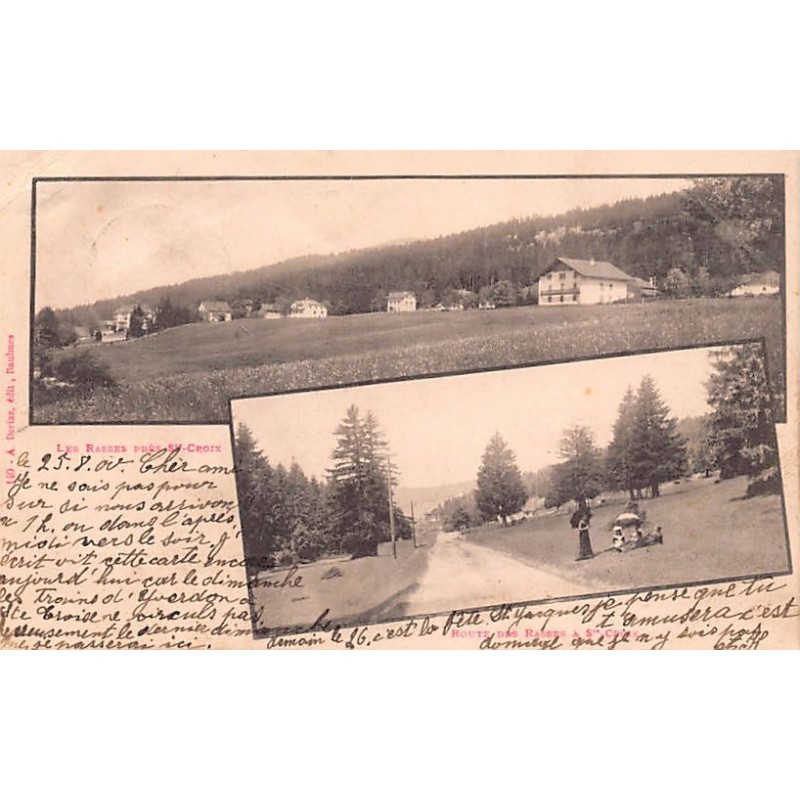 LES RASSES PRÈS STE-CROIX
140 - A. Deriaz, édit., Baulmes
le 25. 8. 00. Cher ami
Je ne sais pas pour
sur si nous arrivon
a 1 h. ou dans l'après
midi vers le soir, j'
écrit vit cette carte encore
aujourd'hui car le dimanche
les Trains d'Yverdon a
Ste Croix ne circule pas
le dernier dimanche
passerai ici.
demain le 26. c'est la Fête
je pense que tu
t'amusera c'est
que je n'y sois pas
ROUTE DES RASSES A STE-CROIX